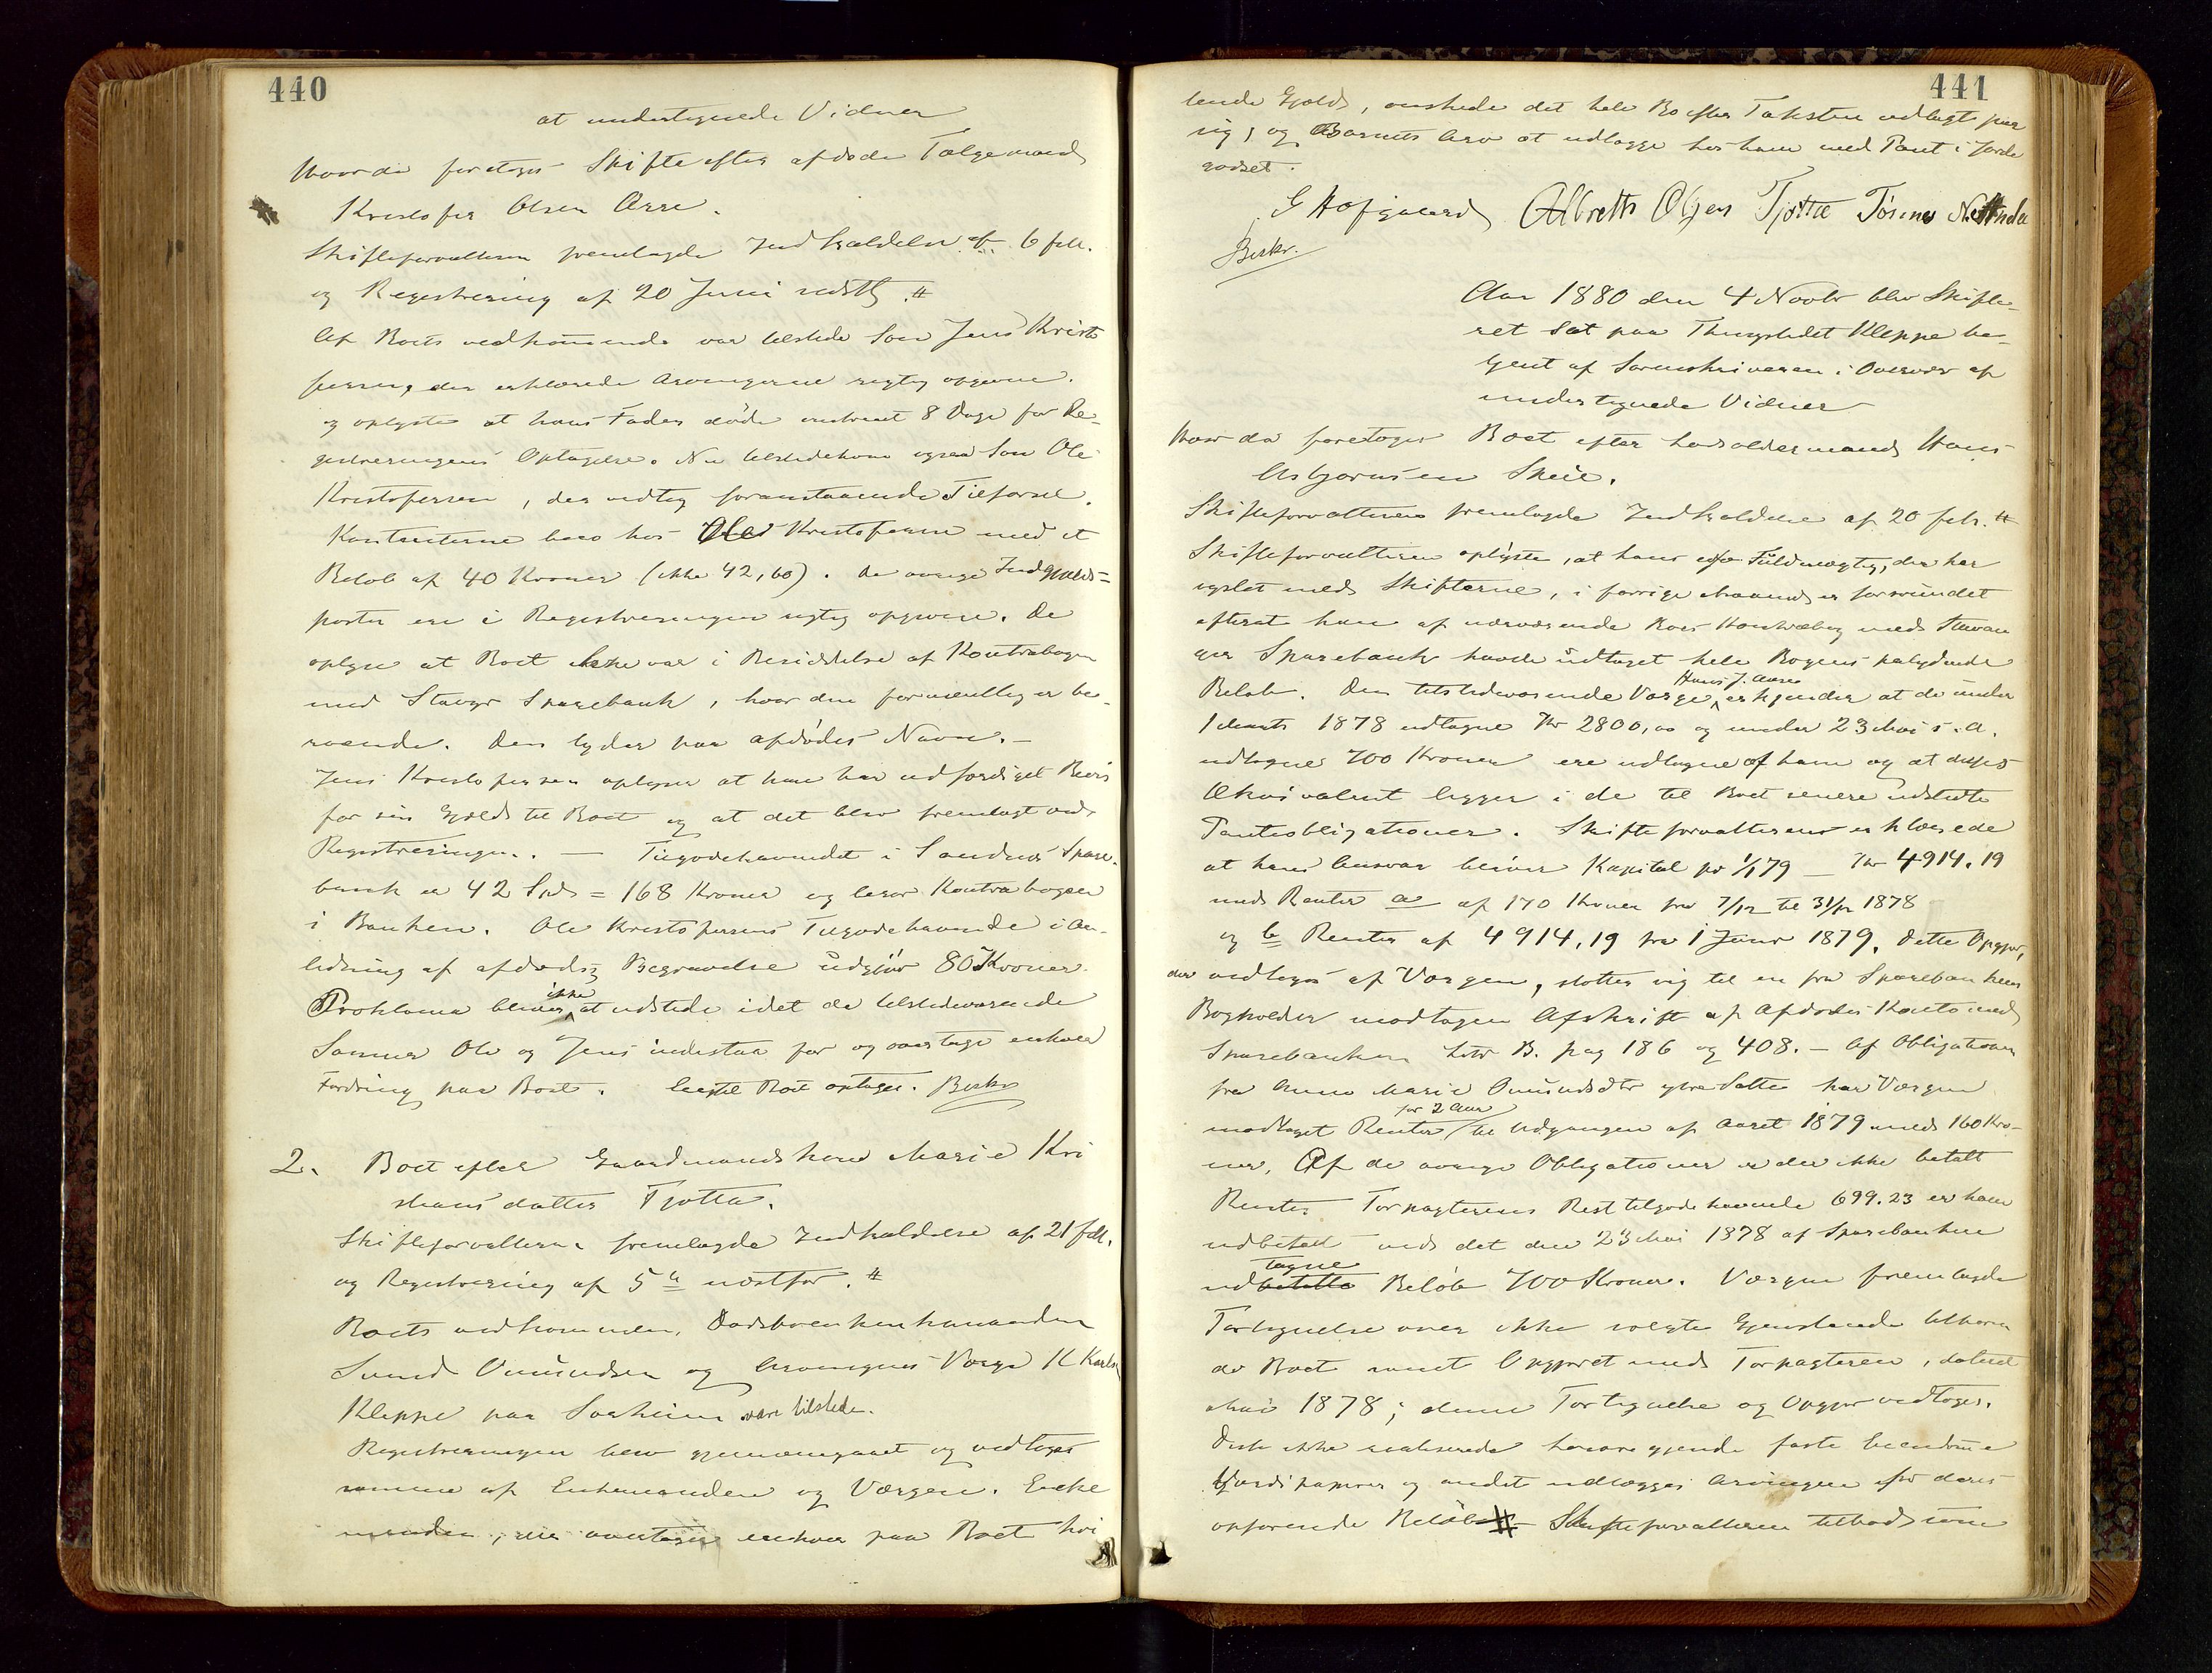 440
at undertegnede Vidner
Hvorda foretoges Skifte efter afdøde Følgemand
Kristofer Olsen Orre.
Skifteforvalteren fremlagde Indkaldelse af 6 febr.
og Registrering af 20 Juni sidstl. #
Af Boets vedkommende var tilstede Søn Jens Kristo
fersen, der erklærede Arvingerne rigtig opgivne.
og oplyste at hans Fader døde omtrent 8 Dage før Re-
gistreringens Optagelse. Nu tilstedekom ogsaa Søn Ole
Kristofersen, der vedtog foranstaaende Tilførsel.
Kontanterne bero hos Ole Kristofersen med et
Beløb af 40 Kroner (ikke 42,60). De øvrige Indgjælds=
poster ere i Registreringen rigtig opgivne. De
oplyse at Boet ikke var i Besiddelse af Kontrabogen
med Stavgr Sparebank, hvor den formentlig er be-
roende. Den lyder paa afdødes Navn. -
Jens Kristofersen oplyser at han har udfærdiget Bevis
for sin Gjæld til Boet og at det blev fremlagt ved
Registreringen. - Tilgodehavendet i Sandnes Spare-
bank er 42 Spd = 168 Kroner og beror Kontrabogen
i Banken. Ole Kristofersens Tilgodehavende i An-
ledning af afdødes Begravelse udgjør 80 Kroner.
Proklama bliver ikke at udstede idet de tilstedeværende
Sønner Ole og Jens indestaa for og overtage enhver
Fordring paa Boet. Boet optages. Beskr
2. Boet efter Gaardmandskone Marie Kri
stiansdatter Tjøtta.
Skifteforvalteren fremlagde Indkaldelse af 21 febr.
og Registrering af 5te næstfør. #
Boets vedkommen, Dødsboenkemanden
Svend Omundsen og Arvingens Værge K Karls
Kleppe paa Sørheim vare tilstede.
Registreringen blev gjennemgaaet og vedtoges
samme af Enkemanden og Værgen. Enke
manden, der overtager enhver paa Boet hvi
441
lende Gjæld, ønskede det hele Bo efter Taksten udlagt paa
sig, og Barnets Arv at udlægge hos ham med Pant i Jorde
godset.
G Hofgaard Albreth Olsen Tjøtte Tørines N
Beskr.
Aar 1880 den 4 Novbr blev Skifte-
ret sat paa Thingstedet Kleppe be-
tjent af Sorenskriveren i Overvær af
undertegnede Vidner
Hvor da foretoges Boet efter Lods oldermand Hans
Asbjørnsen Skeie.
Skifteforvalteren fremlagde Indkaldelse af 20 febr. #
Skifteforvalteren oplyste, at hans Fuldmægtig, der har
syslet med Skifterne, i forrige Maaned er forsvundet
efterat han af nærværende Boes Kontrabog med Stavan
ger Sparebank havde udtaget hele Bogens palydende
Beløb. Den tilstedeværende Værge, Hans J. Aarre erkjender at de under
1 Marts 1878 udtagne Kr 2800,00 og under 23 Mai s. A.
udtagne 700 Kroner ere udtagne af ham og at disses
Ækvivalent ligger i de til Boet senere udstedte
Panteobligationer. Skifteforvalteren erklærede
at hans Ansvar bliver Kapital pr 1/1 79 - Kr 4914.19
med Renter a af 170 Kroner fra 7/12 til 31/12 1878
og b Renter af 4914,19 fra 1 Janr 1879. Dette Opgjør,
der vedtoges af Værgen, støtter sig til en fra Sparebankens
Bogholder modtagen Afskrift af Afdødes Konto med
Sparebanken Litr B. pag 186 og 408. - Af Obligationen
fra Anne Marie Omundsdtr ytre Salte har Værgen
modtaget Renter for 2 Aar til Udgangen af Aaret 1879 med 160 Kro-
ner. Af de øvrige Obligationer er der ikke betalt
Renter Forpagterens Resttilgodehavende 699.23 er ham
udbetalt ved det den 23 Mai 1878 af Sparebanken
udbetalte tagne Beløb 700 Kroner. Værgen fremlagde
Fortegnelse over ikke solgte Gjenstande tilhøren
de Boet samt Opgjøret med Forpagteren, dateret
Mai 1878; denne Fortegnelse og Opgjør vedtoges.
Disse ikke realiserede faste Eiendomme
Værdipapirer og andet udlægges Arvingerne for deres
opførende Beløb # - Skifteforvalteren tilbød